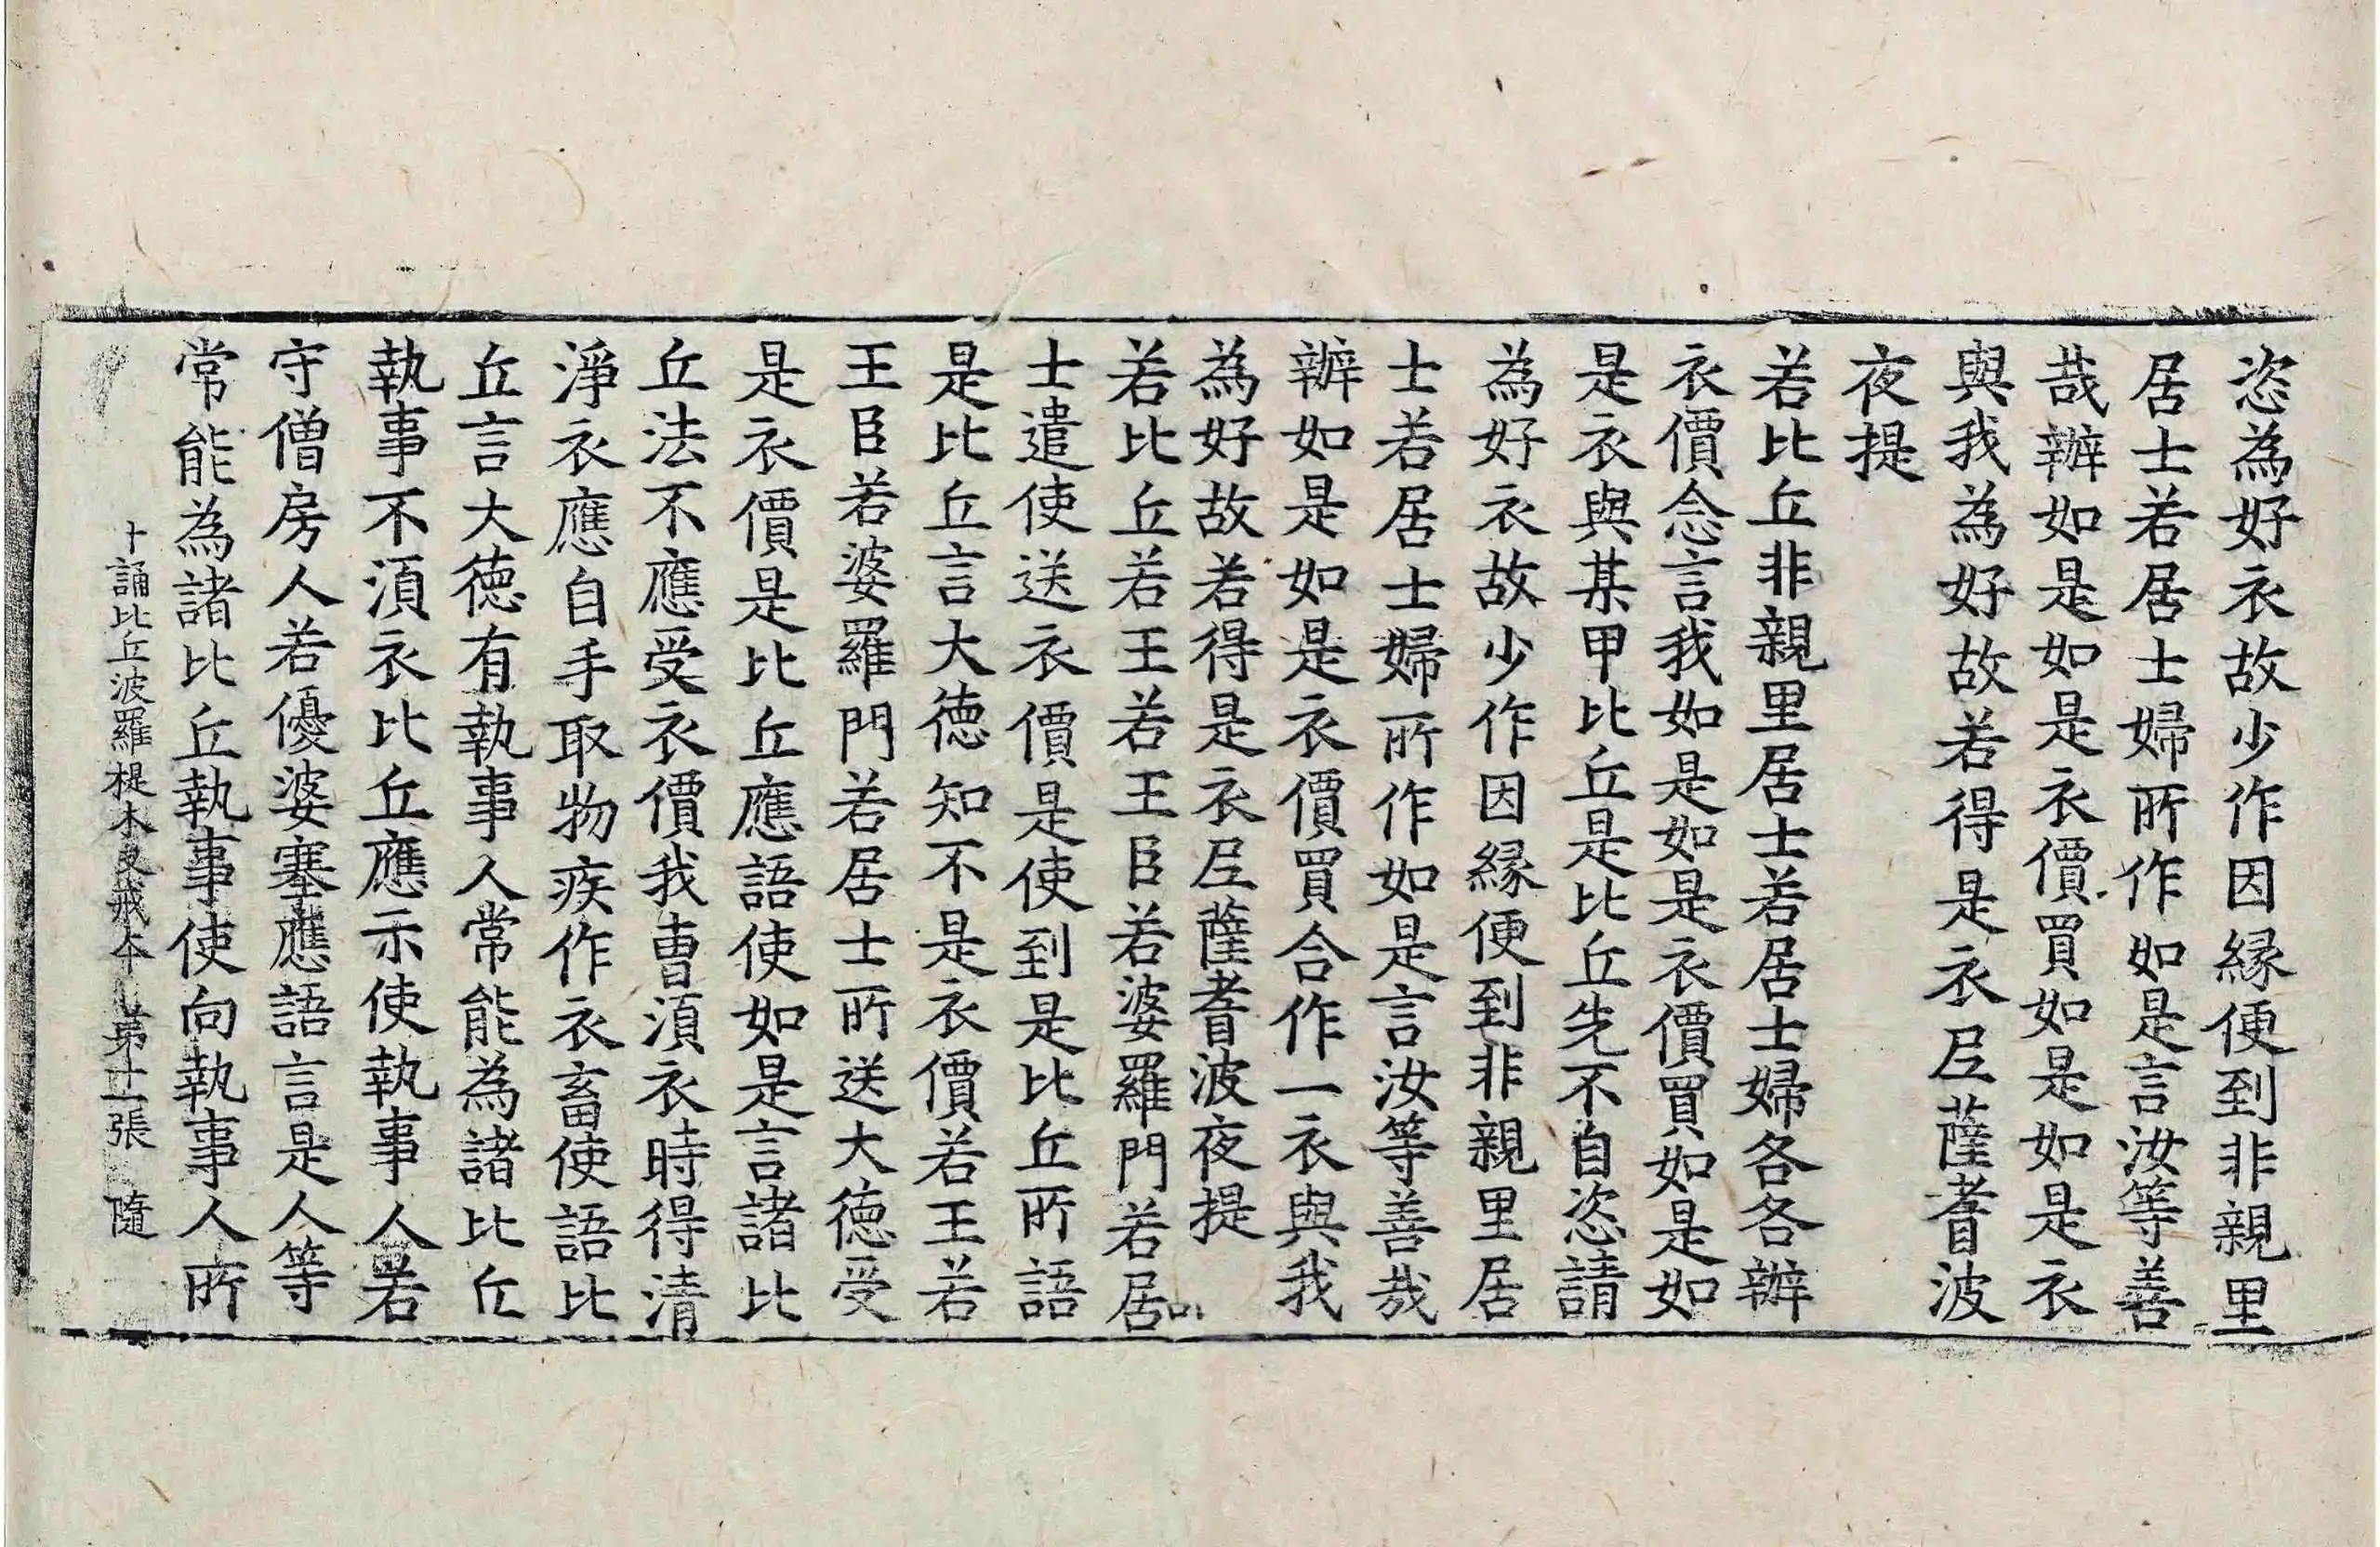 恣為好衣故少作因縁便到非親里
居士若居士婦所作如是言汝等善
哉辦如是如是衣價買如是如是衣
與我為好故若得是衣尼薩耆波
夜提
若比丘非親里居士若居士婦各各辦
衣價念言我如是如是衣價買如是如
是衣與某甲比丘是比丘先不自恣請
為好衣故少作因縁便到非親里居
士若居士婦所作如是言汝等善哉
辦如是如是衣價買合作一衣與我
為好故若得是衣尼薩耆波夜提
若比丘若王若王臣若婆羅門若居
士遣使送衣價是使到是比丘所語
是比丘言大德知不是衣價若王若
王臣若婆羅門若居士所送大德受
是衣價是比丘應語使如是言諸比
丘法不應受衣價我曹須衣時得清
淨衣應自手取物疾作衣畜使語比
丘言大德有執事人常能為諸比丘
執事不須衣比丘應示使執事人若
守僧房人若優婆塞應語言是人等
常能為諸比丘執事使向執事人所
十誦比丘波羅提木叉戒本 第十二張 隨